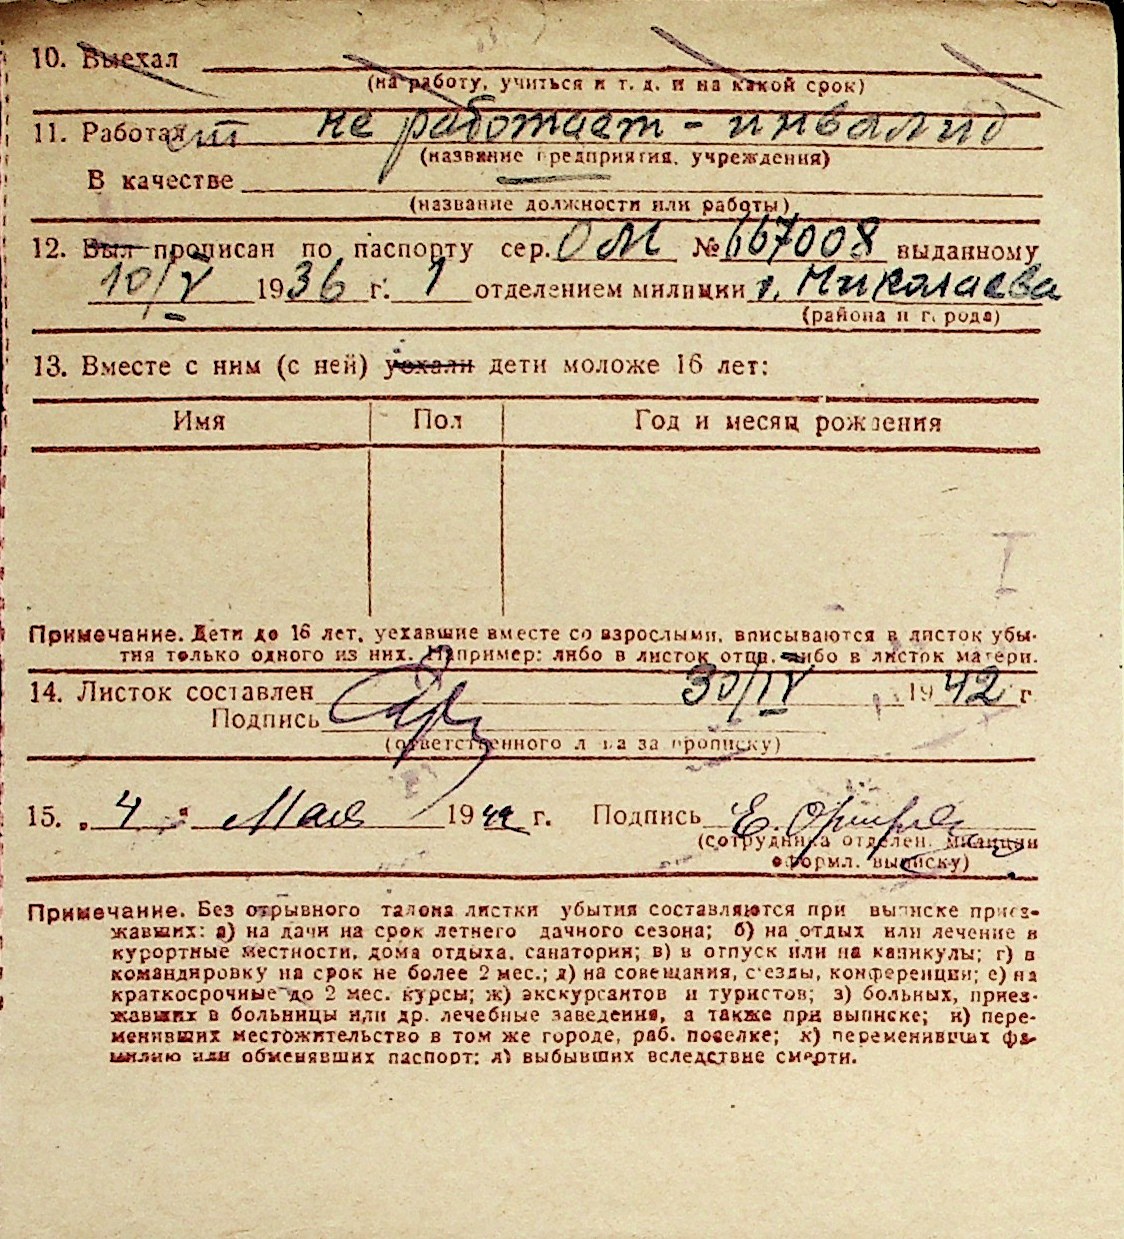 10. Выехал
(на работу, учиться и т. д. и на какой срок)
11. Работает не работает - инвалид
(название предприятия, учреждения)
В качестве
(название должности или работы)
12. Был прописан по паспорту сер. ОМ № 667008 выданному
10/V 1936 г. 1 отделением милиции г. Николаева
(района и города)
13. Вместе с ним (с ней) уехали дети моложе 16 лет:
Имя Пол Год и месяц рождения
Примечание. Дети до 16 лет, уехавшие вместе со взрослыми, вписываются в листок убы-
тия только одного из них. Например: либо в листок отца, либо в листок матери.
14. Листок составлен 30/IV 1942 г.
Подпись
(ответственного лица за прописку)
15. „4" Мая 1942 г. Подпись Е.
(сотрудника отделен. милиции
оформл. выписку)
Примечание. Без отрывного талона листки убытия составляются при выписке приез-
жавших: а) на дачи на срок летнего дачного сезона; б) на отдых или лечение в
курортные местности, дома отдыха, санатории; в) в отпуск или на каникулы; г) в
командировку на срок не более 2 мес.; д) на совещания, с'езды, конференции; е) на
краткосрочные до 2 мес. курсы; ж) экскурсантов и туристов; з) больных, приез-
жавших в больницы или др. лечебные заведения, а также при выписке; и) пере-
менивших местожительство в том же городе, раб. поселке; к) переменивших фа-
милию или обменявших паспорт; л) выбывших вследствие смерти.